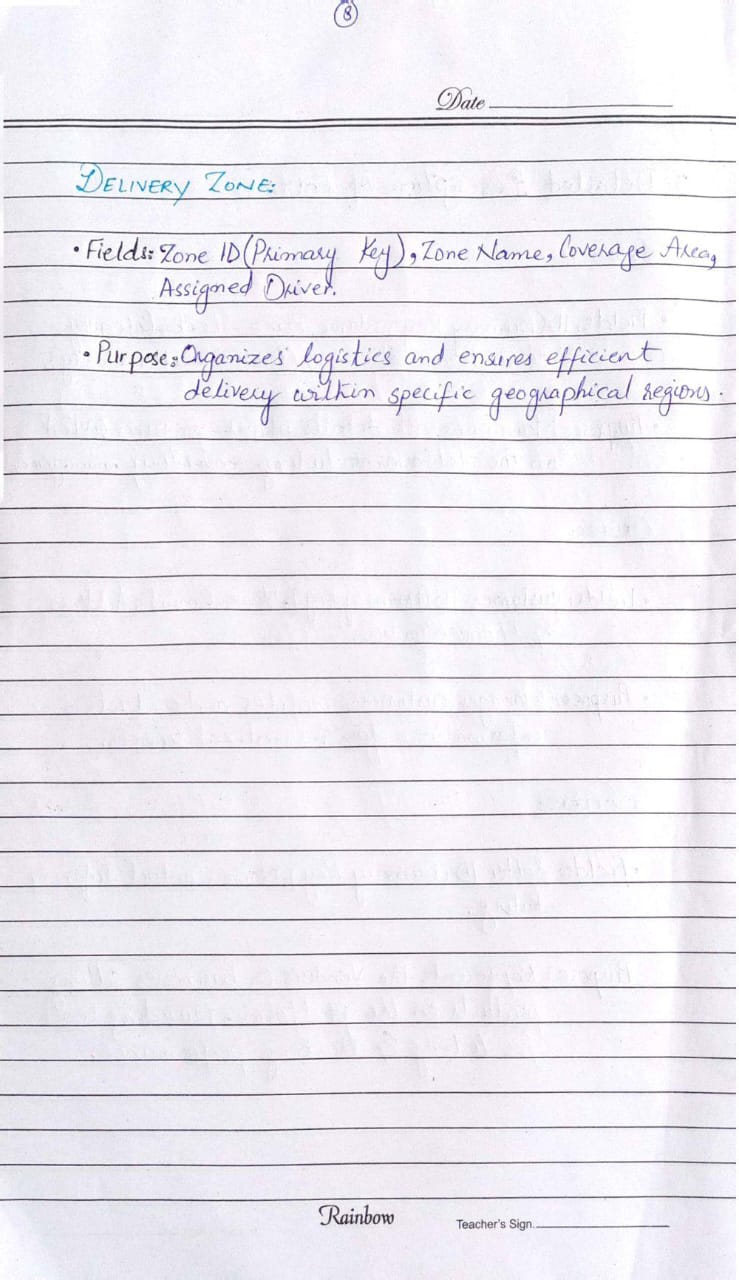 8
Date
DELIVERY ZONE:
• Fields: Zone ID (Primary Key), Zone Name, Coverage Area,
Assigned Driver.
• Purpose: Organizes logistics and ensures efficient
delivery within specific geographical regions.
Rainbow
Teacher's Sign.